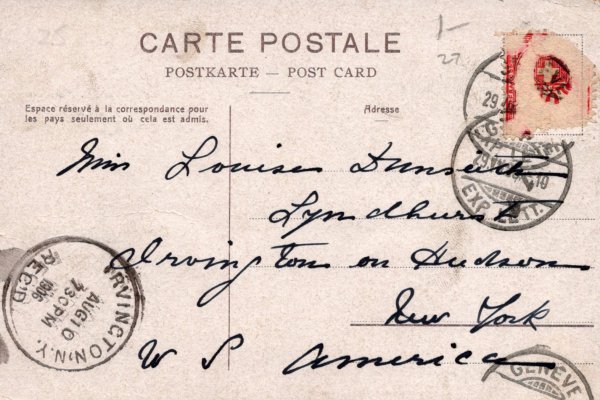 25
1-
27
CARTE POSTALE
POSTKARTE — POST CARD
Espace réservé à la correspondance pour
les pays seulement où cela est admis.
Adresse
Miss Louise Dunseith
Lyndhurst
Irvington on Hudson
New York
U S America
IRVINGTON, N.Y.
AUG 10
730 PM
1906
REC'D
EXP. LETT.
GENÈVE